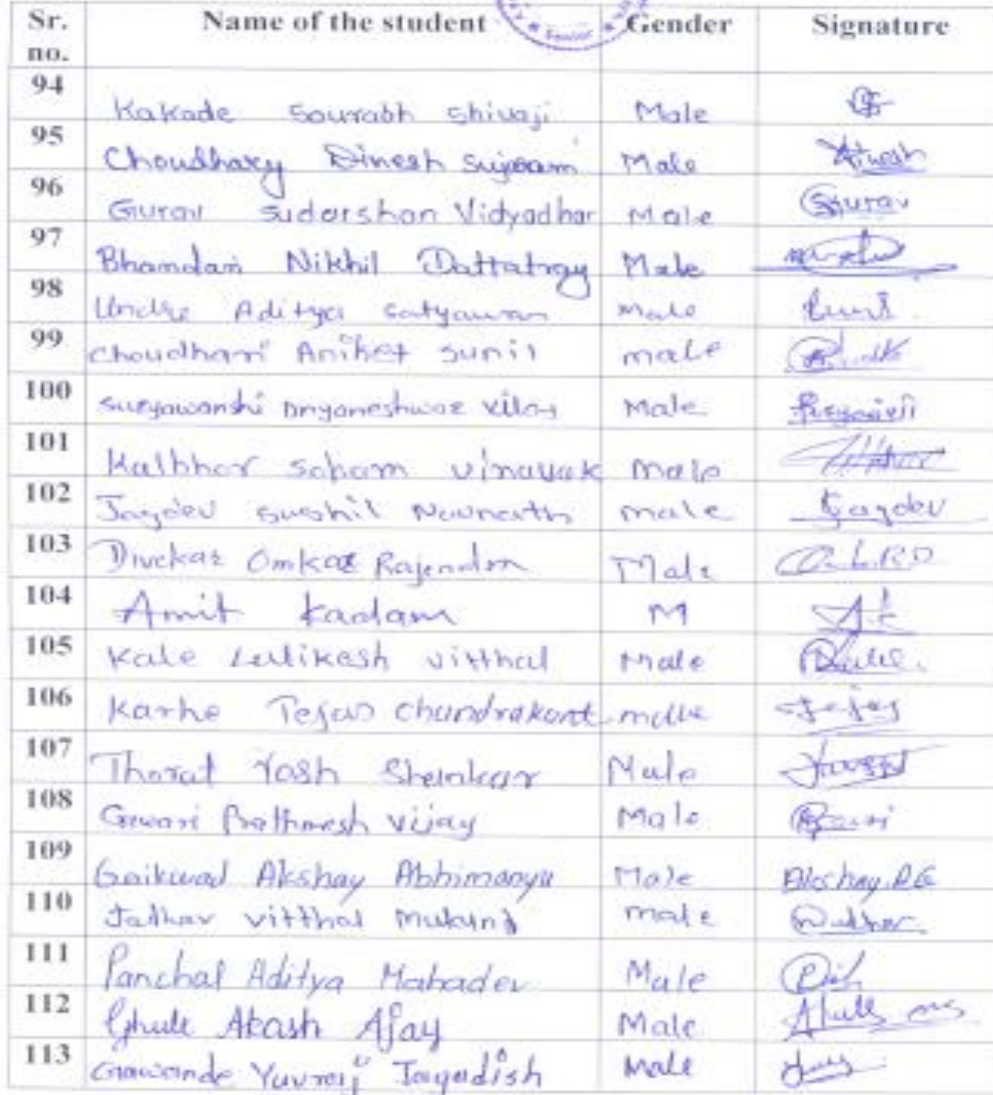 Senior
Sr. no. Name of the student Gender Signature
94 Kakade Sourabh Shivaji Male
95 Choudhary Dinesh Sujaram Male Dinesh
96 Gurav Sudarshan Vidyadhar Male Gurav
97 Bhandari Nikhil Dattatray Male
98 Undre Aditya Satyawan Male
99 Choudhari Aniket Sunil male
100 Suryawanshi Dnyaneshwar Vilas Male
101 Kalbhor Soham Vinayak Male
102 Jagdev Sushil Navnath male Jagdev
103 Divekar Omkar Rajendra Male
104 Amit Kadam M A.K
105 Kale vitthal Male
106 Karhe Tejas Chandrakant male Tejas
107 Thorat Yash Shankar Male
108 Gawari Prathmesh vijay Male
109 Gaikwad Akshay Abhimanyu Male Akshay.AG
110 Jadhav vitthal Mukund male
111 Panchal Aditya Mahadev Male
112 Ghule Akash Ajay Male Ghule
113 Gawande Yuvraj Jagadish Male